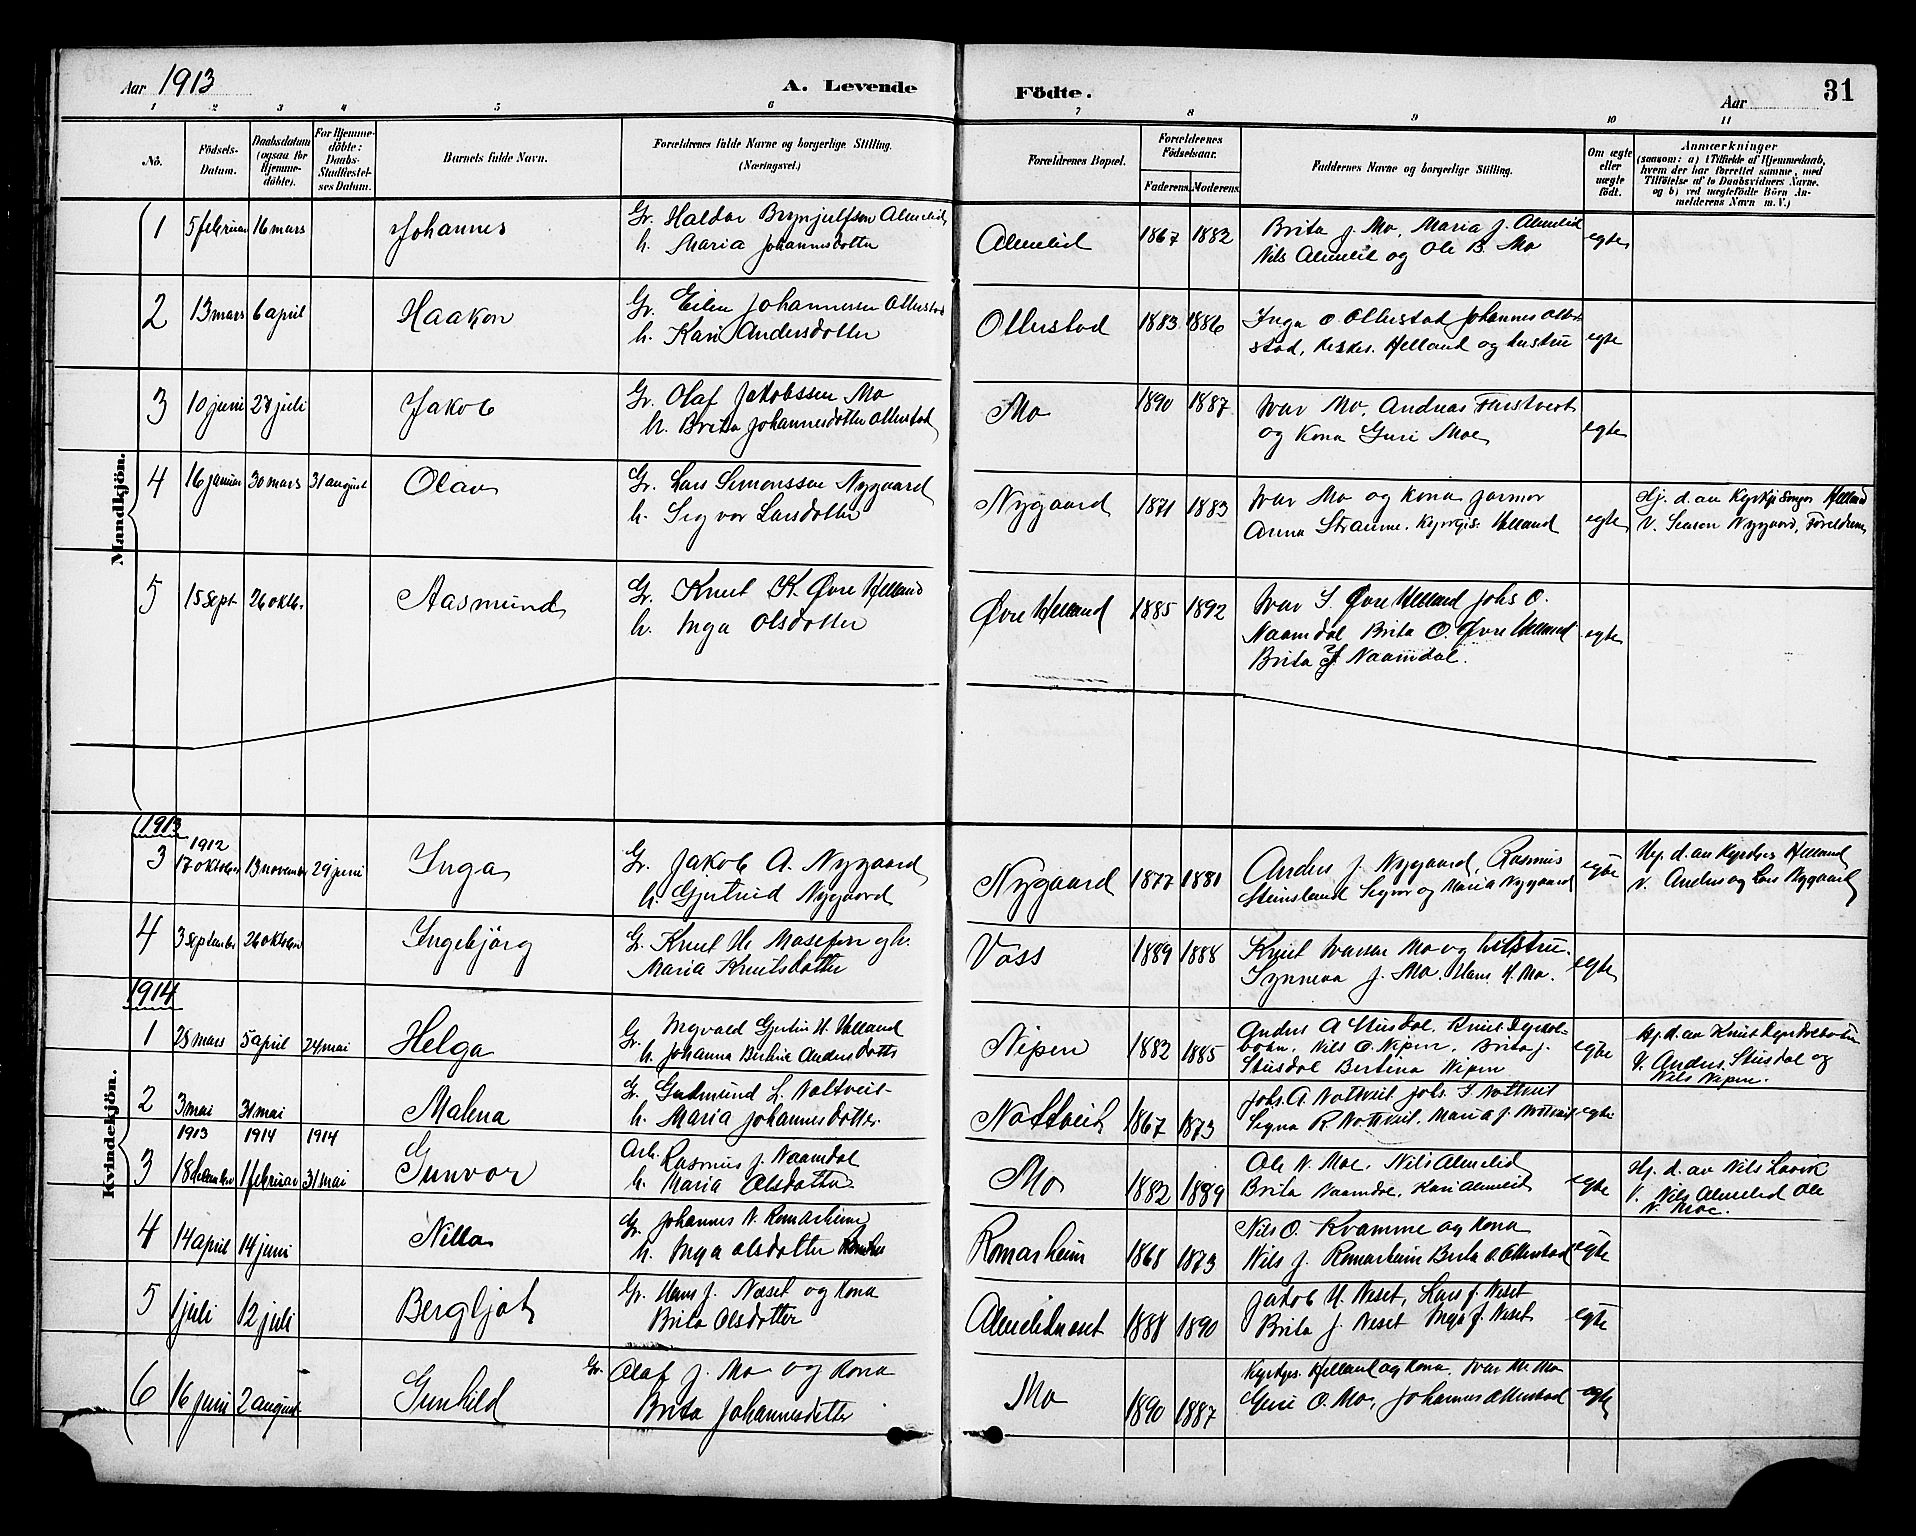 Aar 1913 A. Levende Födte. Aar 31
1 2 3 4 5 6 7 8 9 10 11
No. Födsels-Datum. Daabsdatum (ogsaa for Hjemmedöbte). For Hjemmedöbte: Daabs-Stadfæstelses Datum. Barnets fulde Navn. Forældrenes fulde Navne og borgerlige Stilling. (Næringsvei.) Forældrenes Bopæl. Forældrenes Födselsaar. Faderens. Moderens. Faddernes Navne og borgerlige Stilling. Om ægte eller uægte födt. Anmærkninger (saasom: a) i Tilfælde af Hjemmedaab, hvem der har forrettet samme, med Tilföielse af to Daabsvidners Navne, og b) ved uægtefödte Börn Anmelderens Navn m. V.)
Mandkjön.
1 5 februar 16 mars Johannes Gr. Haldor Brynjulfsen Almelid Almelid 1867 1882 Brita J. Mo, Maria J. Almelid egte
h. Maria Johannesdotter Nils Almelid og Ole B. Mo
2 13 mars 6 april Haakon Gr. Johannessen Ollestad Ollestad 1883 1886 Inga O. Ollestad Johannes Olle-
h. Kari Andersdotter stad, Helland og hustru egte
3 10 juni 27 juli Jakob Gr. Olaf Jakobssen Mo Mo 1890 1887 Ivar Mo, Andreas
h. Brita Johannesdotter Ollestad og Kona Guri Moe egte
4 16 januar 30 mars 31 august Olav Gr. Lars Simonssen Nygaard Nygaard 1871 1883 Ivar Mo og Kona Hj. d. av Helland
h. Sigvor Larsdotter Anna Straume. Helland egte V. Nygaard, Foreldrene
5 15 sept 26 oktbr. Aasmund Gr. Knut K. Øvre Helland Øvre Helland 1885 1892 Ivar S. Øvre Helland Johs O.
h. Inga Olsdotter Naamdal Brita O. Øvre Helland egte
Brita J. Naamdal.
Kvindekjön.
1913
1912
3 17 oktober 13 november 29 juni Inga Gr. Jakob A. Nygaard Nygaard 1877 1881 Anders J. Nygaard, Rasmus egte Hj. d. av Helland
h. Gjertrud Nygaard Steinsland Sigvor og Maria Nygaard V. Anders og Lars Nygaard
4 3 september 26 oktober Ingebjörg G. Knut H. og h. Voss 1889 1888 Knut Mo og hustru egte
Maria Knutsdotter Synneva J. Mo. Hans H. Mo.
1914
1 25 mars 5 april 24 mai Helga Gr. Ingvald Gjertin H. Helland Nipen 1882 1885 Anders A Stusdal. Knut egte Hj. d. av Knut
h. Johanna Bertine Andersdotter Nils O. Nipen, Brita J. V. Anders Stusdal og
Stusdal Bertina Nipen Nils Nipen.
2 3 mai 31 mai Malena G. Gudmund L. Nottveit Nottveit 1867 1873 Johs. A. Nottveit Johs. egte
h. Maria Johannesdotter Signa R. Nottveit. Maria J. Nottveit
1913 1914 1914
3 18 1 februar 31 mai Gunvor Arb. Rasmus J. Naamdal Mo 1882 1889 Ole N. Moe. Nils Almelid egte Hj. d. av Nils Lavik
h. Maria Olsdotter Brita Naamdal, Kari Almelid V. Nils Almelid Ole
N. Moe.
4 14 april 14 juni Nilla Gr. Johannes N. Romarheim Romarheim 1868 1873 Nils O. Kvamme og Kona egte
h. Inga Olsdotter Nils J. Romarheim Brita O. Ollestad
5 1 juli 12 juli Bergljot Gr. Hans J. Neset og Kona Almelidneset 1888 1890 Jakob H. Neset, Lars J. Neset egte
Brita Olsdotter Brita J. Neset Inga J. Neset
6 16 juni 2 august Gunhild Gr. Olaf J. Mo og Kona Mo 1890 1887 Helland og Kona. Ivar Mo egte
Brita Johannesdotter Guri O. Mo, Johannes Ollestad